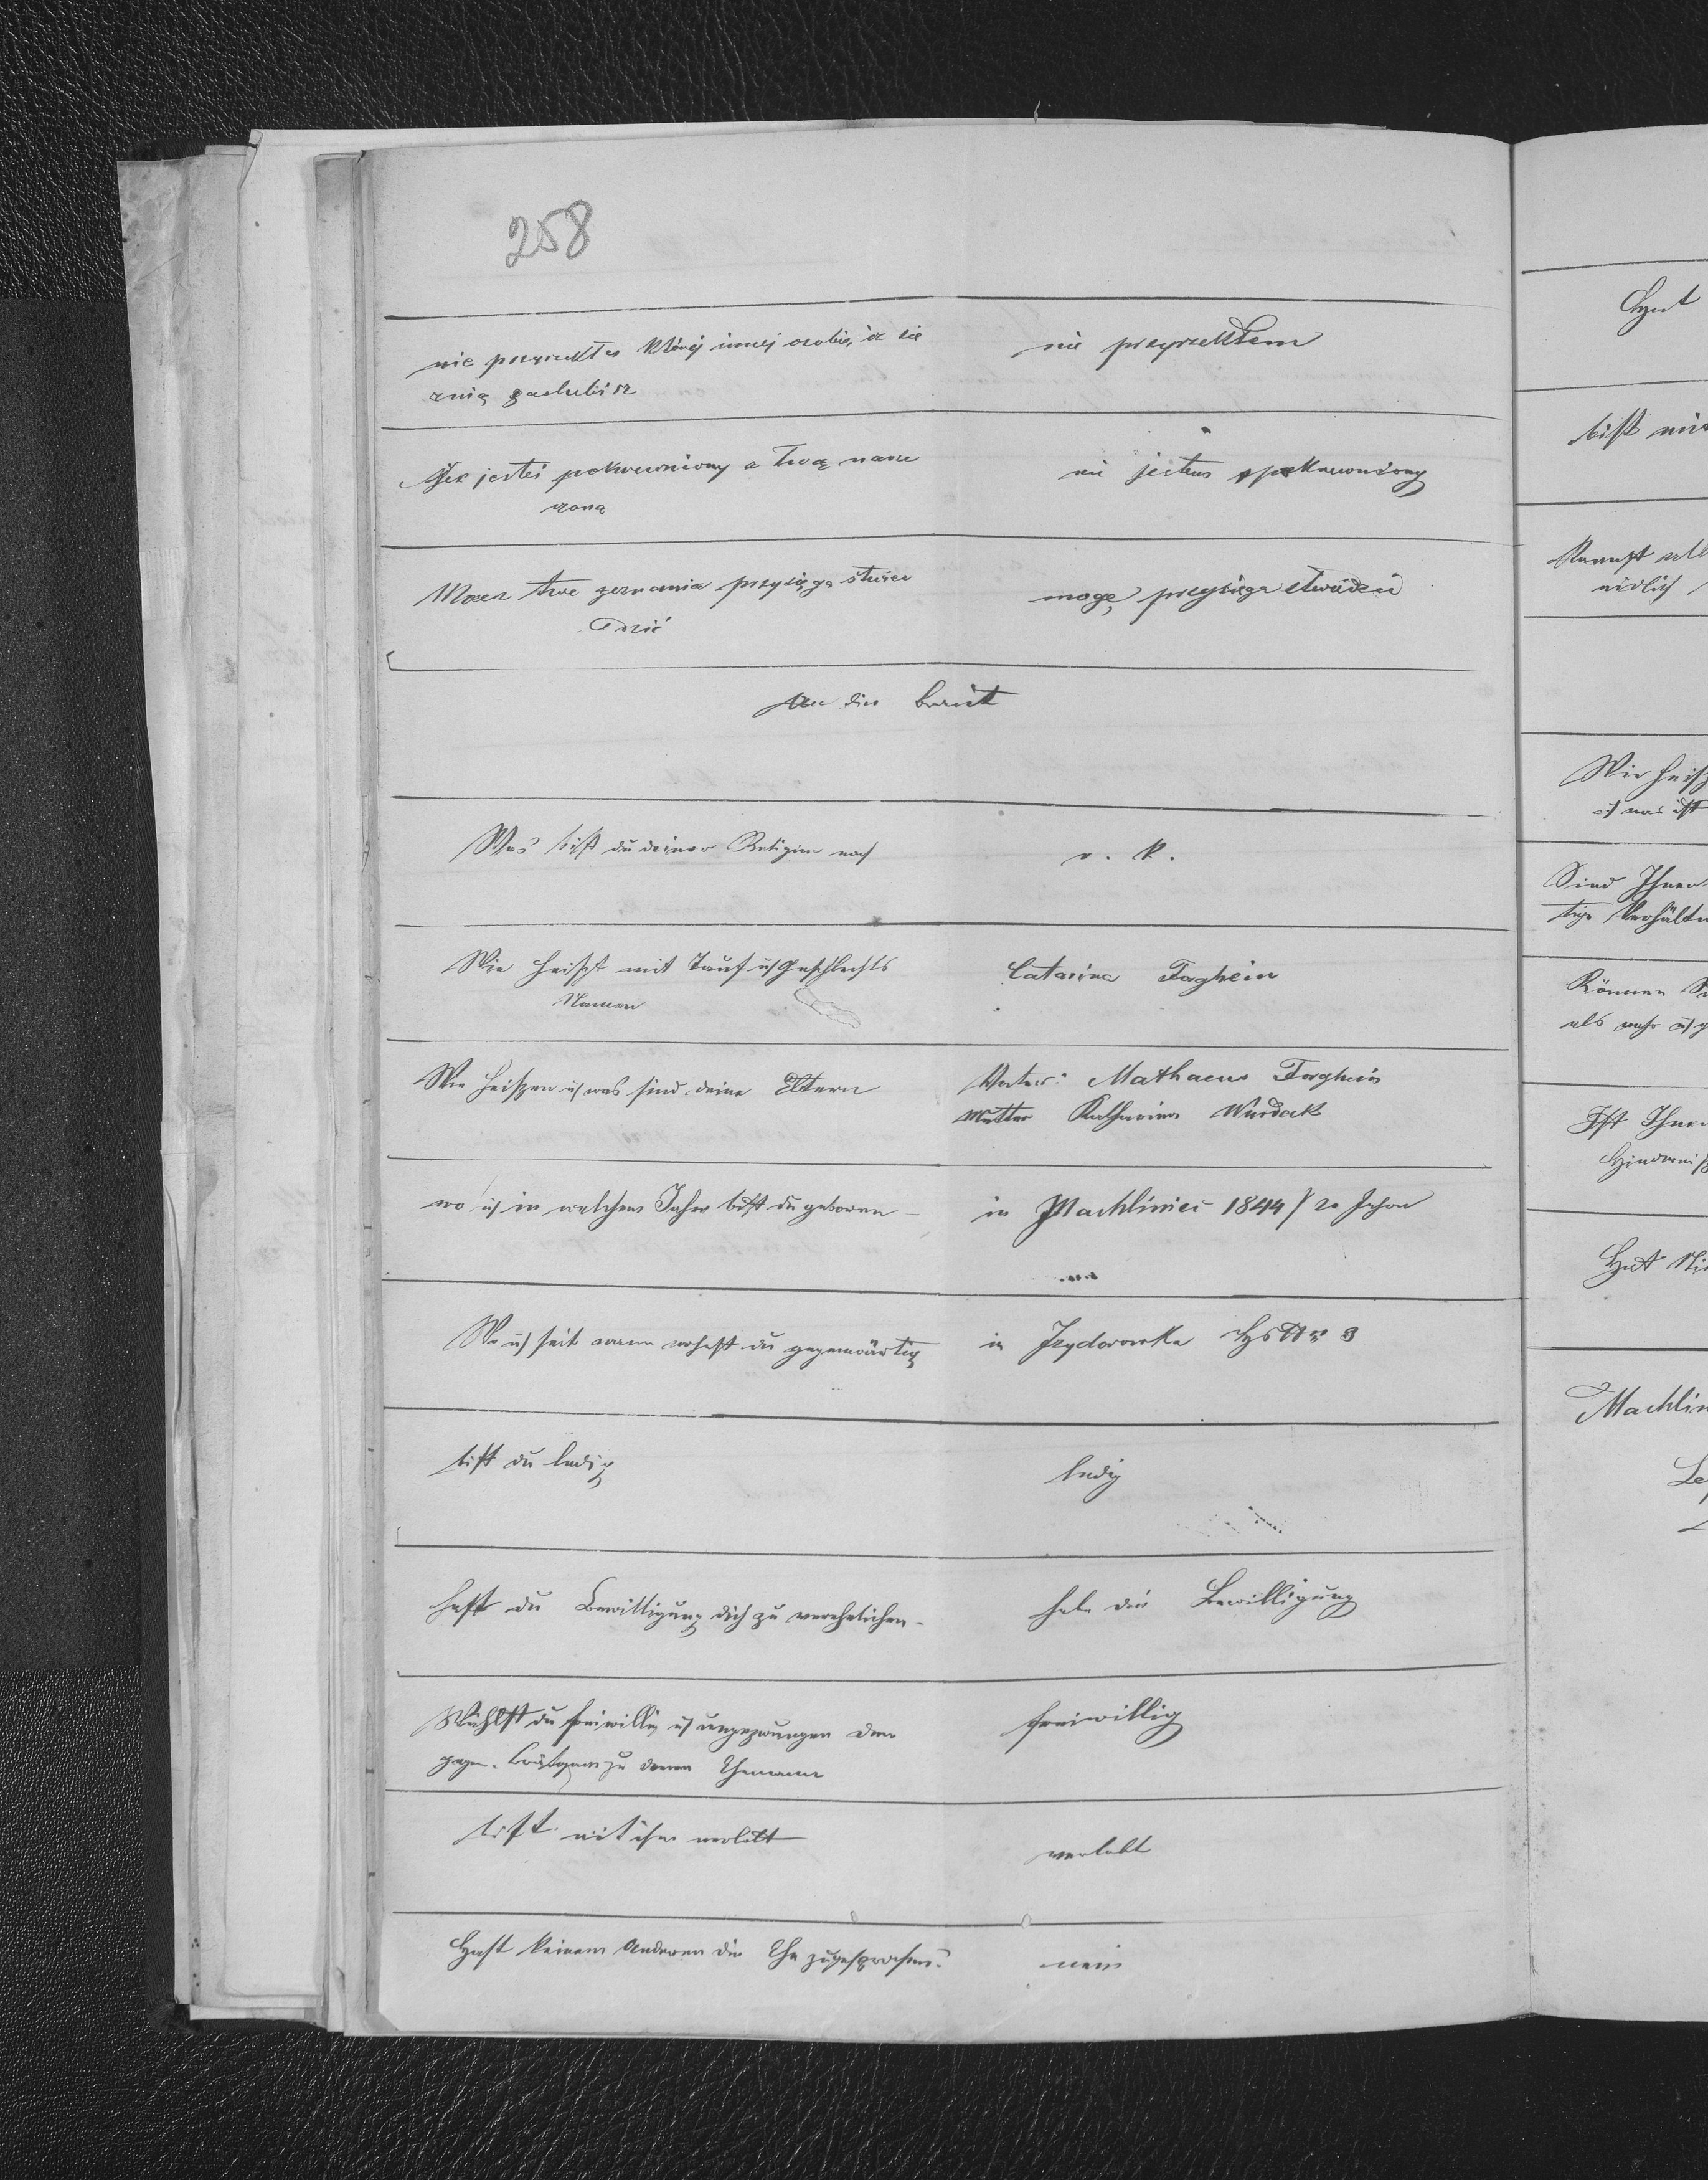 258
nie przyrzekłeś której innej osobie, iż się
z nią zaślubisz
nie przyrzekłem
jesteś pokrewniony z Twą narze
czoną
nie jestem pokrewniony
Masz twe zeznania przysięgą stwier
dzić
mogę przysięgą stwierdzić
An die Braut
Was bist du deiner Religion nach
r. k.
Wie heißt mit Tauf u Geschlechts
Namen
Catarina Forghein
Wie heißen u was sind deine Eltern
Vater: Mathaeus Forghein
Mutter Katharina Wurdak
wo u in welchem Jahre bist du geboren
in Machliniec 1844 / 20 Jahre
Wo u seit wann wohnst du gegenwärtig
in Izydorowka Hs Nr 3
bist du ledig
ledig
hast du Bewilligung dich zu verehelichen
habe die Bewilligung
Wählst du freiwillig u ungezwungen den
gegen. Bräutigam zu deinem Ehemanne
freiwillig
bist mit ihm verlobt
verlobt
Hast keinem Anderen die Ehe zugesprochen?
nein
Hat
bist mi
Kannst
eidlich
Wie heiß
u was ist
Sind Ihnen
tige Verhältn
Können
als wahr u
Ist Ihne
Hinderniß
Hat
Machlin